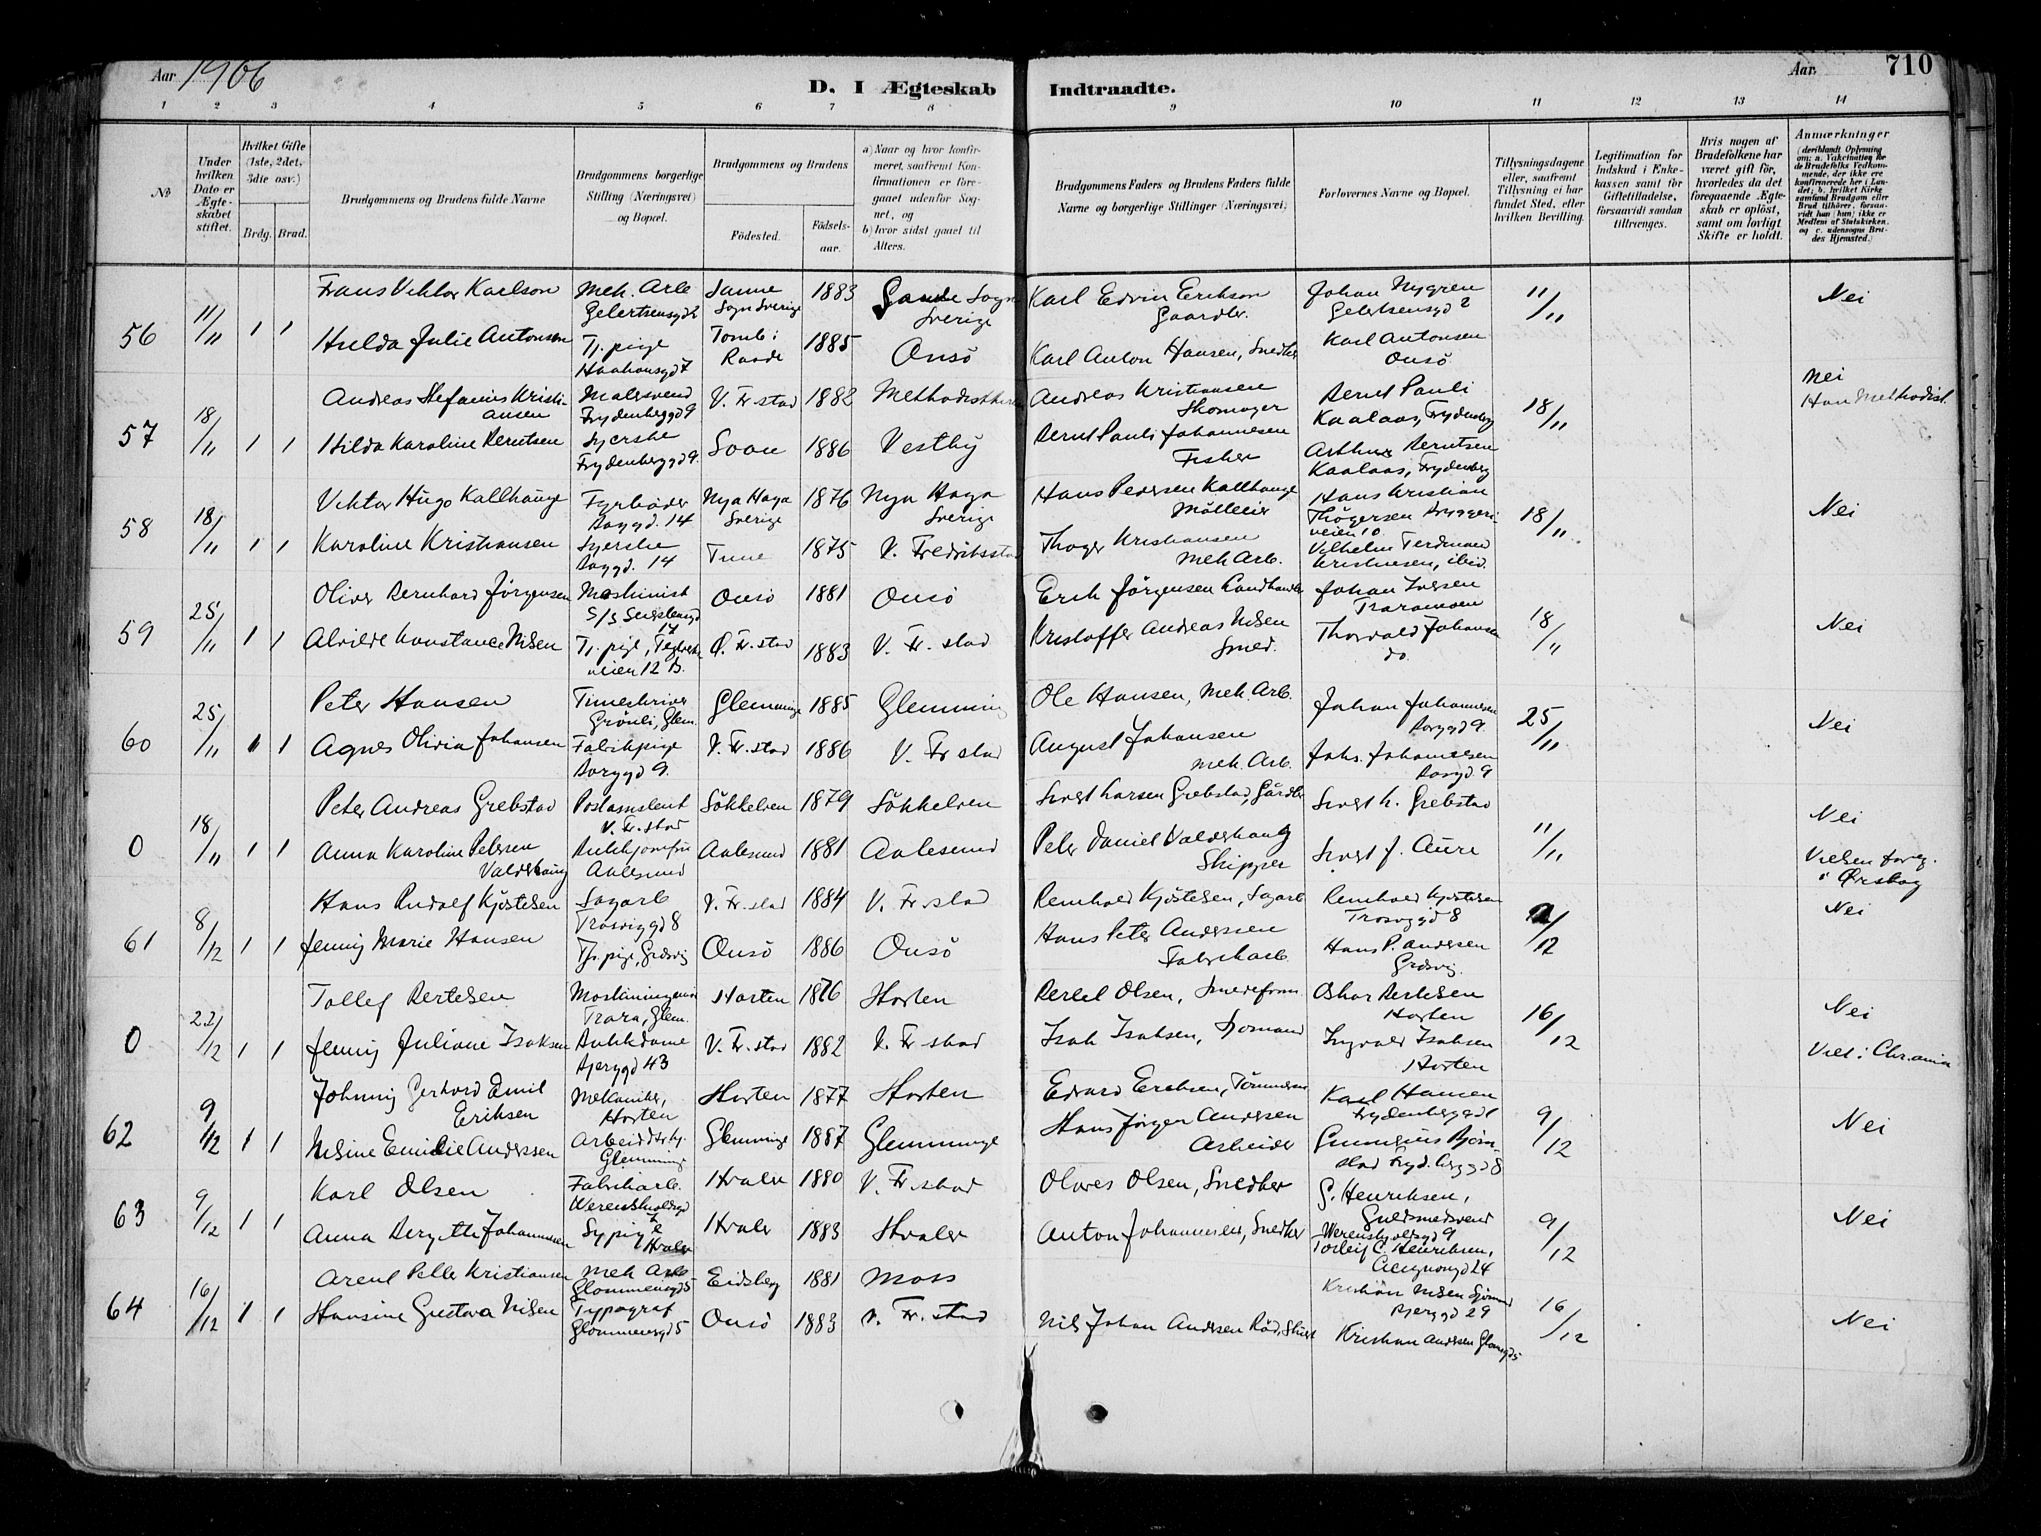 Aar 1906
D. I Ægteskab Indtraadte.
Aar.
710
1 2 3 4 5 6 7 8 9 10 11 12 13 14
No
Under hvilken Dato er Ægteskabet stiftet.
Hvilket Gifte (1ste, 2det, 3die osv.)
Brdg. Brud.
Brudgommens og Brudens fulde Navne
Brudgommens borgerlige Stilling (Næringsvei) og Bopæl.
Brudgommens og Brudens
Fødested.
Fødselsaar.
a) Naar og hvor konfirmeret, saafremt Konfirmationen er foregaaet udenfor Sognet, og
b) hvor sidst gaaet til Alters.
Brudgommens Faders og Brudens Faders fulde Navne og borgerlige Stillinger (Næringsvei)
Forlovernes Navne og Bopæl.
Tillysningsdagene eller, saafremt Tillysning ei har fundet Sted, efter hvilken Bevilling.
Legitimation for Indskud i Enkekassen samt for Giftetilladelse, forsaavidt saadan tiltrænges.
Hvis nogen af Brudefolkene har været gift før, hvorledes da det foregaaende Ægteskab er opløst, samt om lovligt Skifte er holdt.
Anmærkninger
(deriblandt Oplysning om: a. Vakcination for de Brudefolks Vedkommende, der ikke ere konfirmerede her i Landet; b. hvilket Kirkesamfund Brudgom eller Brud tilhører, forsaavidt han (hun) ikke er Medlem af Statskirken, og c. udensogns Brudes Hjemsted.)
56 11/11 1 1
Frans Viktor Karlson Mek. Arb Gelertsensgd 2 Sanne Sogn Sverige 1883 Sanne Sogn Sverige Karl Edvin Erikson Gaardbr. Johan Nygren Gelertsensgd 2 11/11 Nei
Hulda Julie Antonsen Tj. pige Haakonsgd 7 Tomb i Raade 1885 Onsö Karl Anton Hansen, Snedker Karl Antonsen Onsö
57 18/11 1 1
Andreas Stefanius Kristiansen Malersvend Frydenberggd 9 V. Fr.stad 1882 Andreas Kristiansen Skomager Bernt Pauli Kaalaas, Frydenberg 18/11 Nei Han Methodist.
Hilda Karoline Berntsen Syerske Frydenberggd 9. Soon 1886 Vestby Bernt Pauli Johannesen Fisker Arthur Berntsen Kaalaas, Frydenberg
58 18/11 1 1
Viktor Hugo Kallhauge Fyrböder Borggd. 14 Nya Haga Sverige 1876 Nya Haga Sverige Hans Pedersen Kallhauge Hans Kristian Thögersen Bryggeriveien 10 18/11 Nei
Karoline Kristiansen Syerske Borggd. 14 Tune 1875 V. Fredriksstad Thöger Kristiansen Mek Arb. Vilhelm Ferdinand Kristensen, ibid.
59 25/11 1 1
Oliver Bernhard Jörgensen Maskinist Onsö 1881 Onsö Erik Jörgensen Landhandler Johan Iversen Traramoen 18/11 Nei
Alvilde Konstance Nilsen Tj. pige, Teglverksveien 12 B. Ö. Fr.stad 1883 V. Fr. stad Kristoffer Andreas Nilsen Smed. Thorvald Johansen do.
60 25/11 1 1
Peter Hansen Timeskriver Grönli, Glem. Glemminge 1885 Glemminge Ole Hansen, Mek Arb. Johan Johannesen Borggd 9. 25/11 Nei
Agnes Olivia Johansen Fabrikpige Borggd 9. V. Fr. stad 1886 V. Fr stad August Johansen Mek. Arb. Johs. Johannesen Borgd. 9
0 18/11 1 1
Peter Andreas Grebstad Postassistent V. Fr. stad Sökkelven 1879 Sökkelven Sivert Larsen Grebstad, Gårdbr Sivert L. Grebstad 11/11 Nei
Anna Karoline Petersen Valderhaug Butikjomfru Aalesund Aalesund 1881 Aalesund Peter Daniel Valderhaug Skipper Sivert J. Aure Vielsen foreg. i Ørskog
61 8/12 1 1
Hans Rudolf Kjöstelsen Sagarb Trosviggd 8 V. Fr. stad 1884 V. Fr. stad Reinhold Kjöstelsen, Sagarb Reinhold Kjöstelsen Trosviggd 8 2/12 Nei
Jenny Marie Hansen Tj. pige, Gresvig Onsö 1886 Onsö Hans Peter Anderssen Fabrikarb. Hans P. Andersen Gresvig.
0 22/12 1 1
Tollef Bertelsen Trara, Glem. Horten 1876 Horten Bertel Olsen, Smedeform Oskar Bertelsen Horten 16/12 Nei
Jenny Juliane Isaksen Butikdame Bjerggd 43 V. Fr. stad 1882 V. Fr stad Isak Isaksen, Sjömand Ingvald Isaksen Horten Viet i Chr.ania
62 9/12 1 1
Johnny Gerhard Emil Eriksen Mekaniker, Horten Horten 1877 Horten Edvard Eriksen, Tömmerm Karl Hansen Frydenberggd 9/12 Nei
Nilsine Emilie Anderssen Glemminge Glemminge 1887 Glemminge Hans Jörgen Andersen Arbeider Gunnerius Björnstad Fryd. berggd 8
63 9/12 1 1
Karl Olsen Fabrikarb. Werenskioldsgd Hvaler 1880 V. Fr. stad Olaves Olsen, Snedker G. Henriksen, Guldsmedsvend Werenskjoldsgd 9 9/12 Nei
Anna Birgitte Johannesen Sypige Hvaler Hvaler 1883 Hvaler Anton Johannesen, Snedker Torleif C. Henriksen, 24
64 16/12 1 1
Arent Pelle Kristiansen Mek Arb Glommensgd 5 Eidsberg 1881 Moss Kristian Nilsen Sjömand Bjerggd 29 16/12 Nei
Hansine Gustava Nilsen Typograf Glommensgd 5 Onsö 1883 V. Fr. stad Nils Johan Andersen Röd, Kristian Andersen Glomgd 5